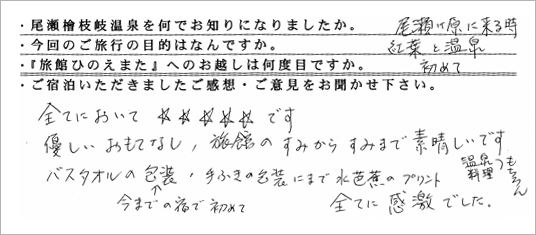 ・尾瀬檜枝岐温泉を何でお知りになりましたか。 尾瀬ヶ原に来る時
・今回のご旅行の目的はなんですか。 紅葉と温泉
・『旅館ひのえまた』へのお越しは何度目ですか。 初めて
・ご宿泊いただきましたご感想・ご意見をお聞かせ下さい。
全てにおいて ☆☆☆☆☆ です
優しいおもてなし，旅館のすみからすみまで素晴しいです
温泉 料理 つもちろん
バスタオルの包装，手ふきの包装にまで水芭蕉のプリント
↑
今までの宿で初めて 全てに感激でした。